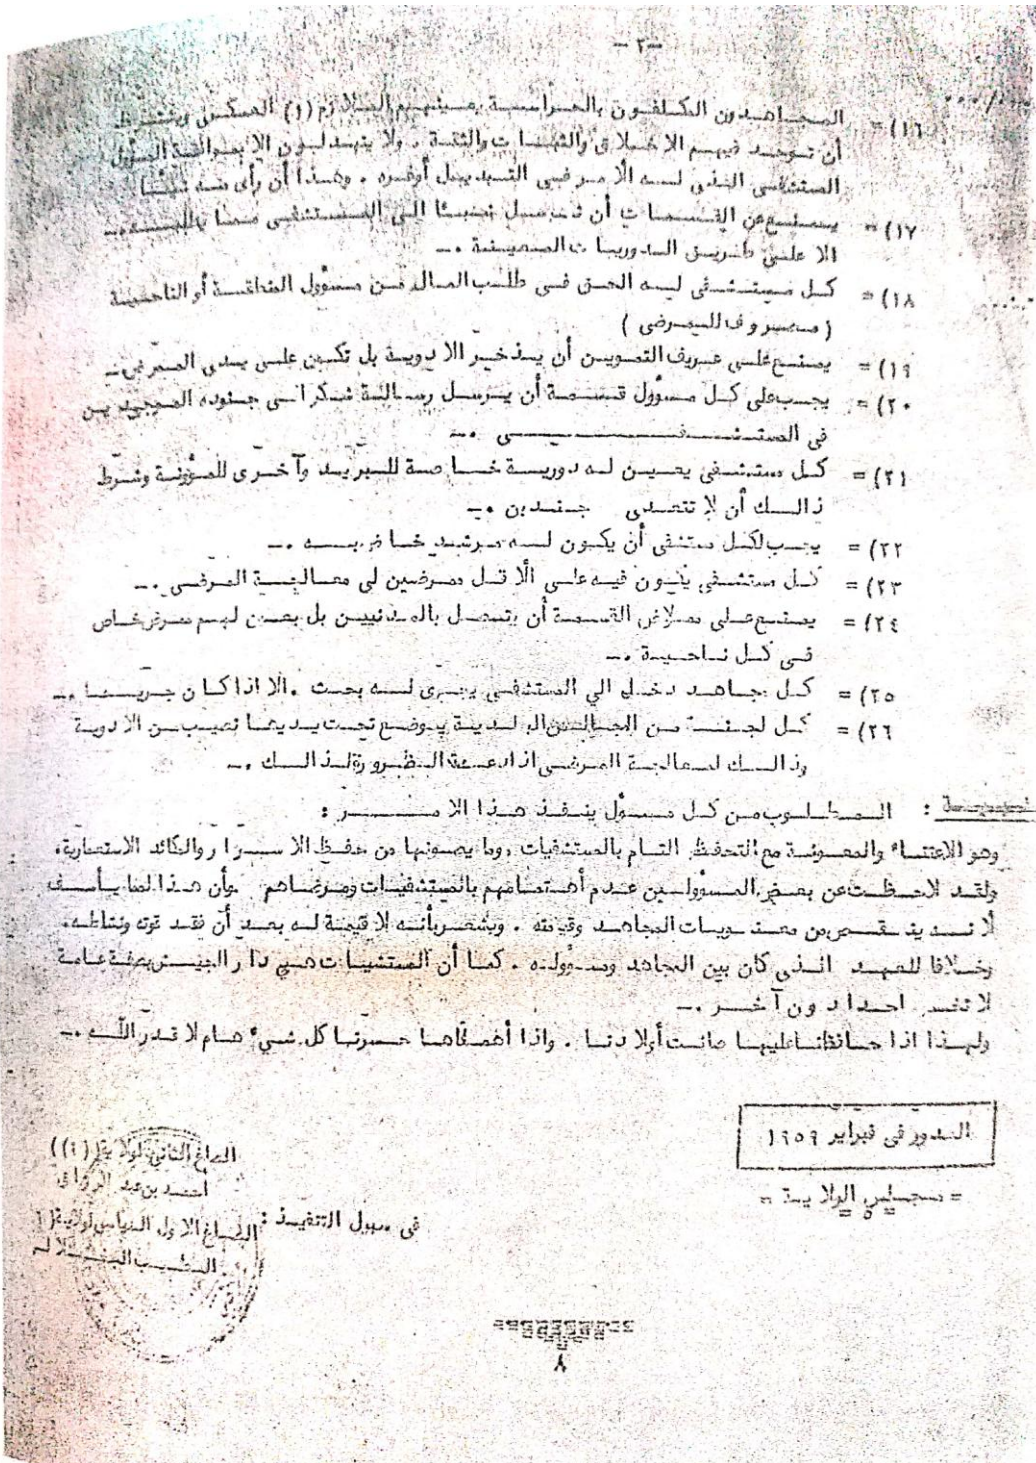 -٢-
١٦) = المجاهدون المكلفون بالحراسة يعينهم الملازم (١) العسكري ويشترط
أن توجد فيهم الاخلاق والثبات والثقة . ولا يتبدلون الا بموافقة المسؤول
المستشفى الذي له الأمر في التبديل أوغيره . وهذا أن رأى منه شيئا
١٧) = يمنع عن القسمات أن ترسل جنديا الى المستشفى
الا على طريق الدوريات المعينة .-
١٨) = كل مستشفى ليه الحق في طلب المال من مسؤول المنطقة أو الناحية
( مصروف للمرضى )
١٩) = يمنع على عريف التموين أن يذخر الادوية بل تكون على يدى الممرض .-
٢٠) = يجب على كل مسؤول قسمة أن يرسل رسالة شكر الى جنوده الموجودين
في المستشفى .-
٢١) = كل مستشفى يعين له دورية خاصة للبريد وآخرى للمؤونة وشرط
ذالك أن لا تتعدى جندين .-
٢٢) = يجب لكل مستشفى أن يكون له مرشد خاص به .-
٢٣) = كل مستشفى يكون فيه على الأقل ممرضين لى معالجة المرضى .-
٢٤) = يمنع على ممرض القسمة أن يتصل بالمدنيين بل يعين لهم ممرض خاص
في كل ناحية .-
٢٥) = كل مجاهد دخل الي المستشفى يجرى له بحث . الا اذا كان جريحا .-
٢٦) = كل لجنة من المجالس البلدية يوضع تحت يديها نصيب من الادوية
وذالك لمعالجة المرضى اذا دعت الظرورة لذالك .-
: المطلوب من كل مسؤول ينفذ هذا الامر :
وهو الاعتناء والمعونة مع التحفظ التام بالمستشفيات ، وما يصونها من حفظ الاسرار والمكائد الاستعمارية.
ولقد لاحظت عن بعض المسؤولين عدم أهتمامهم بالمستشفيات ومرضاهم وأن هذا لما يأسف
لأنه ينقص من معنويات المجاهد وقيمته . ويشعر بأنه لا قيمة له بعد أن فقد قوته ونشاطه.
وخلافا للعهد الذى كان بين المجاهد ومسؤوله . كما أن المستشفيات هي دار الجيش بصفة عامة
لا تخص احدا دون آخر .-
ولهذا اذا حافظنا عليها صانت أولادنا . واذا أهملناها خسرنا كل شيء هام لا قدر الله .-
الصدور في فبراير ١٩٥٩
= مجلس الولاية =
الصاغ الثاني لولاية (٦)
أحمد بن عبد الرزاق
في سبيل التنفيذ :
الصاغ الاول السياسي لولاية (٦)
الطيب